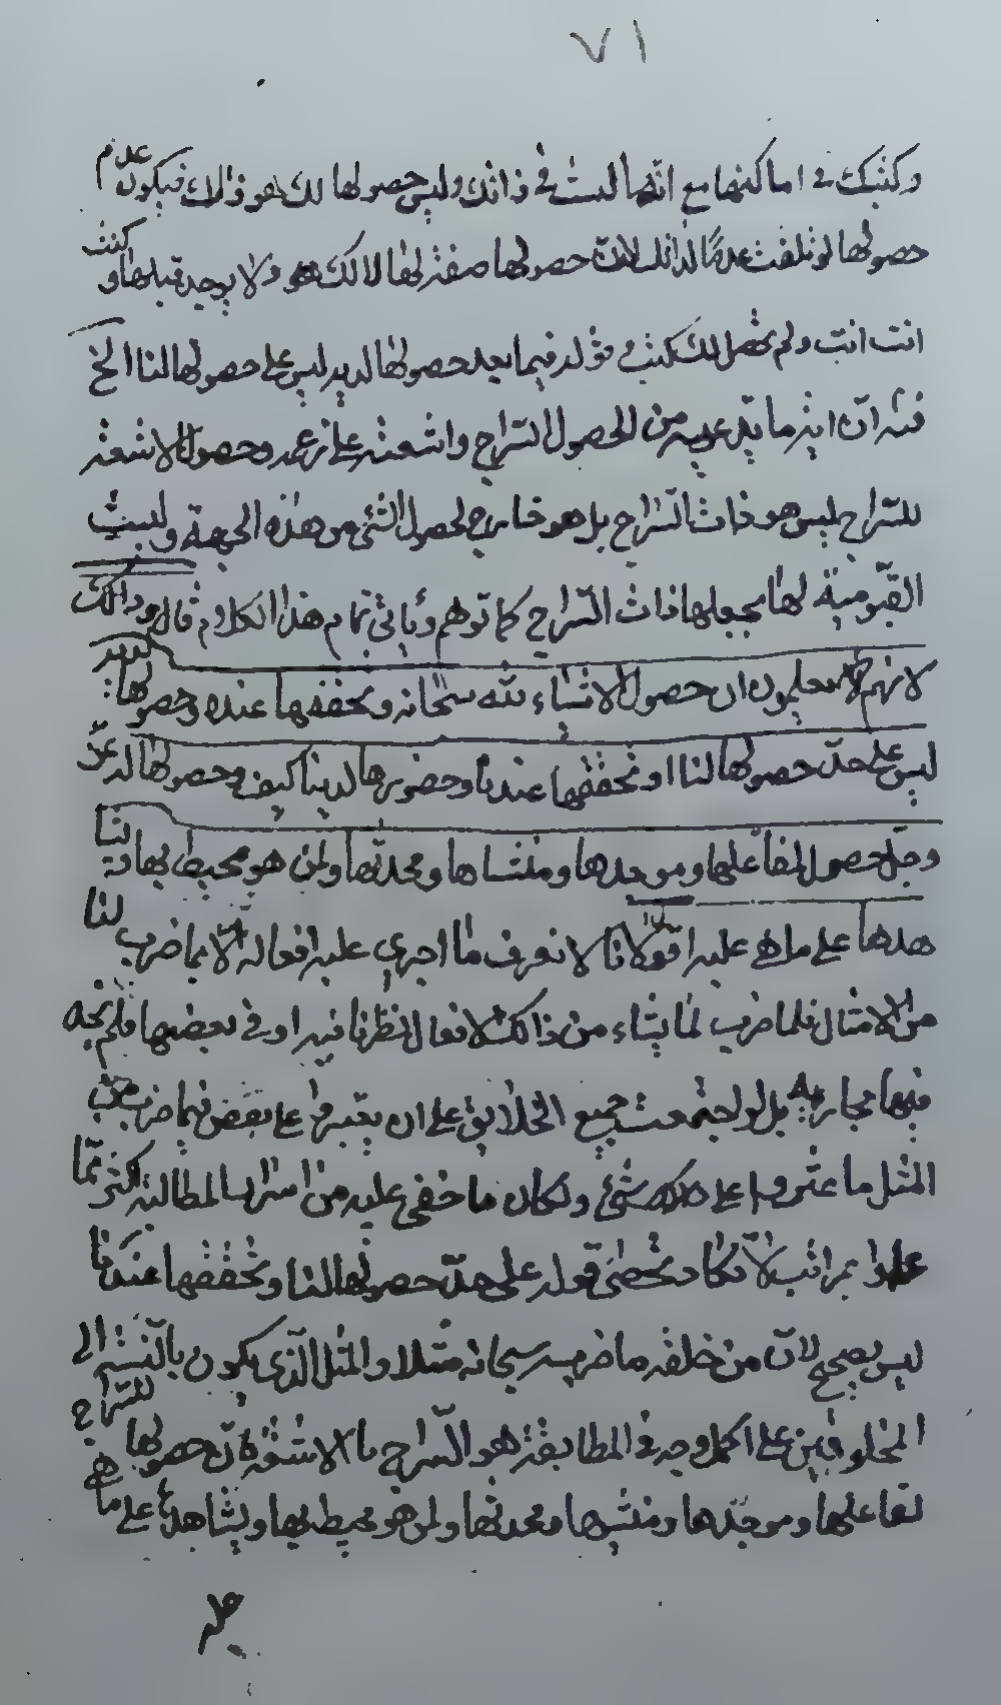 ٧١
وكتبك في اماكنها مع انها ليست في ذاتك وليس حصولها لك هو ذاتك فيكون عدم
حصولها لو تلفت عدمًا لذاتك لان حصولها صفة لها لا لك هو ولا يوجد قبلها وكنت
انت انت ولم تحصل لك كتب قوله فيما بعد حصولها لديه ليس على حصولها لنا الخ
فيه ان اية ما يدعيه من الحصول السراج واشعته على زعمه وحصول الاشعة
للسراج ليس هو ذات السراج بل هو خارج لحصول الشئ من هذه الجهة وليست
القيومية لها بجعلها ذات السراج كما توهم ويأتي تمام هذا الكلام قال وذلك
لانهم لا يعلمون ان حصول الاشياء لله سبحانه وتحققها عنده وحصولها لديه
ليس على حد حصولها لنا او تحققها عندنا وحضورها لدينا كيف وحصولها له عز
وجل حصول لفاعلها وموجدها ومنشأها ومحدثها ولمن هو محيط بها
على ما هي عليه اقول انا لا نعرف ما اجرى عليه افعاله الا بما ضرب لنا
من الامثال فلما ضرب لما يشاء من ذلك الافعال نظرنا فيه او في بعضها فلم نجد
فيها بل لو اجتمعت جميع الخلايق على ان يعثروا على بعض فيما ضرب من
المثل ما عثروا على ذلك بشئ ولكان ما خفي عليه من اسرار المطالبة اكثر مما
علموا بمراتب لا تكاد تحصى قوله على حد حصولها لنا وتحققها عندنا
ليس بصحيح لان من خلقه ما ضربه سبحانه مثلا والمثل الذي يكون بالنسبة الى
المخلوقين على اكمل وجه في المطابقة هو السراج الاشعة فان حصولها للسراج
لفاعلها وموجدها ومنشئها ومحدثها ولمن هو محيط بها ويشاهدها على ما هي
عليه